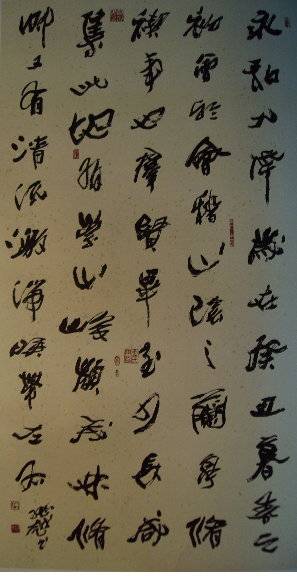 永和九年歲在癸丑暮春之
初會於會稽山陰之蘭亭脩
禊事也群賢畢至少長咸
集此地有崇山峻嶺茂林脩
竹又有清流激湍暎帶左右